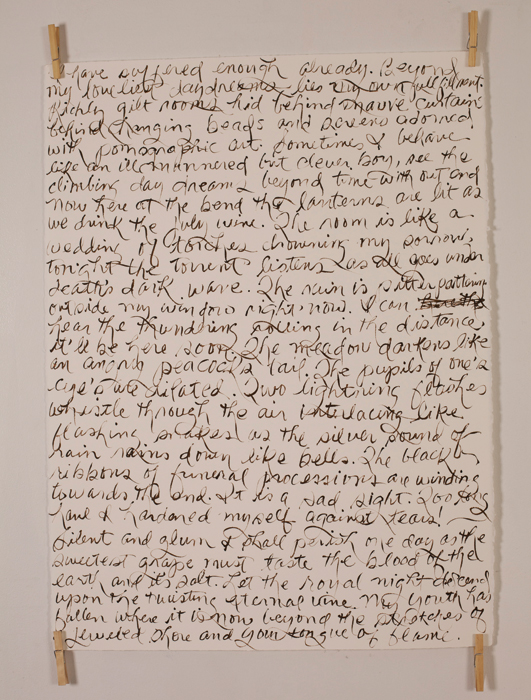 I have suffered enough already. Beyond
my loveliest daydreams lies my own fulfillment.
Richly gilt rooms hid behind mauve curtains
behind hanging beads and screens adorned
with pornographic art. Sometimes I behave
like an ill mannered but clever boy, see the
climbing day dreams beyond time with out end
now here at the bend the lanterns are lit as
we drink the july wine. The room is like a
wedding of torches drowning my sorrows,
tonight the torrent listens as all goes under
death's dark wave. The rain is pattering
outside my window right now. I can
hear the thundering rolling in the distance,
it'll be here soon. The meadow darkens like
an angry peacock's tail. The pupils of one's
eye's are dilated. Two lightning flashes
whistle through the air interlacing like
flashing snakes as the silver sound of
rain rains down like bells. The black
ribbons of funeral processions are winding
towards the end. It is a sad sight. Too long
have I hardened myself against tears!
Silent and glum I shall perish one day as the
sweetest grape must taste the blood of the
earth and it's salt. Let the royal night descend
upon the twisting eternal vine. My youth has
fallen where it is now beyond the stretches of
jeweled shore and your tongue of flame.